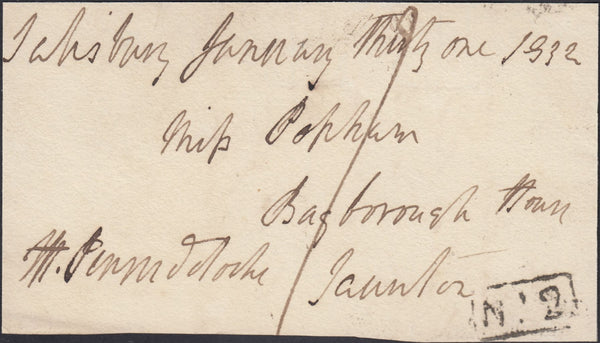 Salisbury January Thirty one 1832
Miss Popham
Bagborough House
Taunton
No. 2